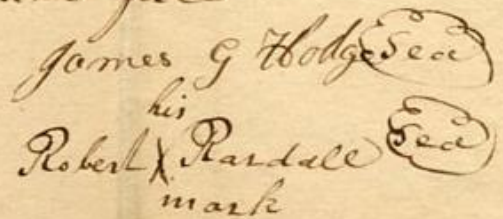 James G Hodge Seal
his
Robert X Randall Seal
mark